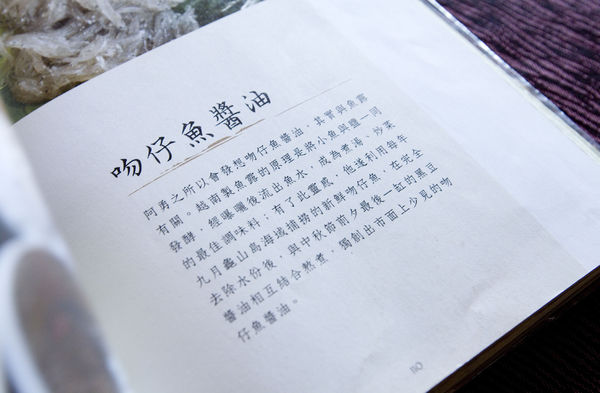 吻仔魚醬油
阿勇之所以會發想吻仔魚醬油，其實與魚露
有關。越南製魚露的原理是將小魚與鹽一同
發酵，經曝曬後流出魚水，成為煮湯、炒菜
的最佳調味料；有了此靈感，他遂利用每年
九月龜山島海域捕撈的新鮮吻仔魚，在完全
去除水份後，與中秋節前夕最後一缸的黑豆
醬油相互結合熬煮，獨創出市面上少見的吻
仔魚醬油。
110